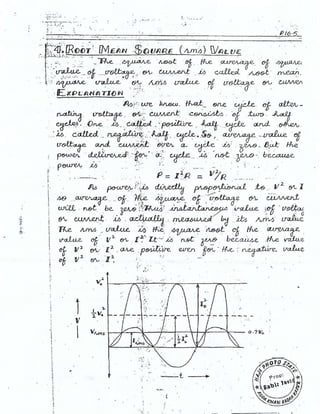 P.16-5
4. ROOT MEAN SQUARE (rms) VALUE
The square root of the average of square
value of voltage or current is called root mean
square value or rms value of voltage or current
EXPLANATION
As we know that one cycle of alter-
nating voltage or current consists of two half
cycles. One is called positive half cycle and other
is called negative half cycle. So, average value of
voltage and current over a cycle is zero. But the
power delivered for a cycle is not zero because
power is
P = I²R = V²/R
As power is directly proportional to V² or I
so average of the square of voltage or current
will not be zero. Thus instantaneous value of voltage
or current is actually measured by its rms value
The rms value is the square root of the average
value of V² or I². It is not zero because the value
of V² or I² are positive even for the negative value
of V² or I².
V₀²
I₀²
½V₀²
V
Vrms
Irms
½I₀²
0.7V₀
t
HAJI PHOTO STATE
Prop: